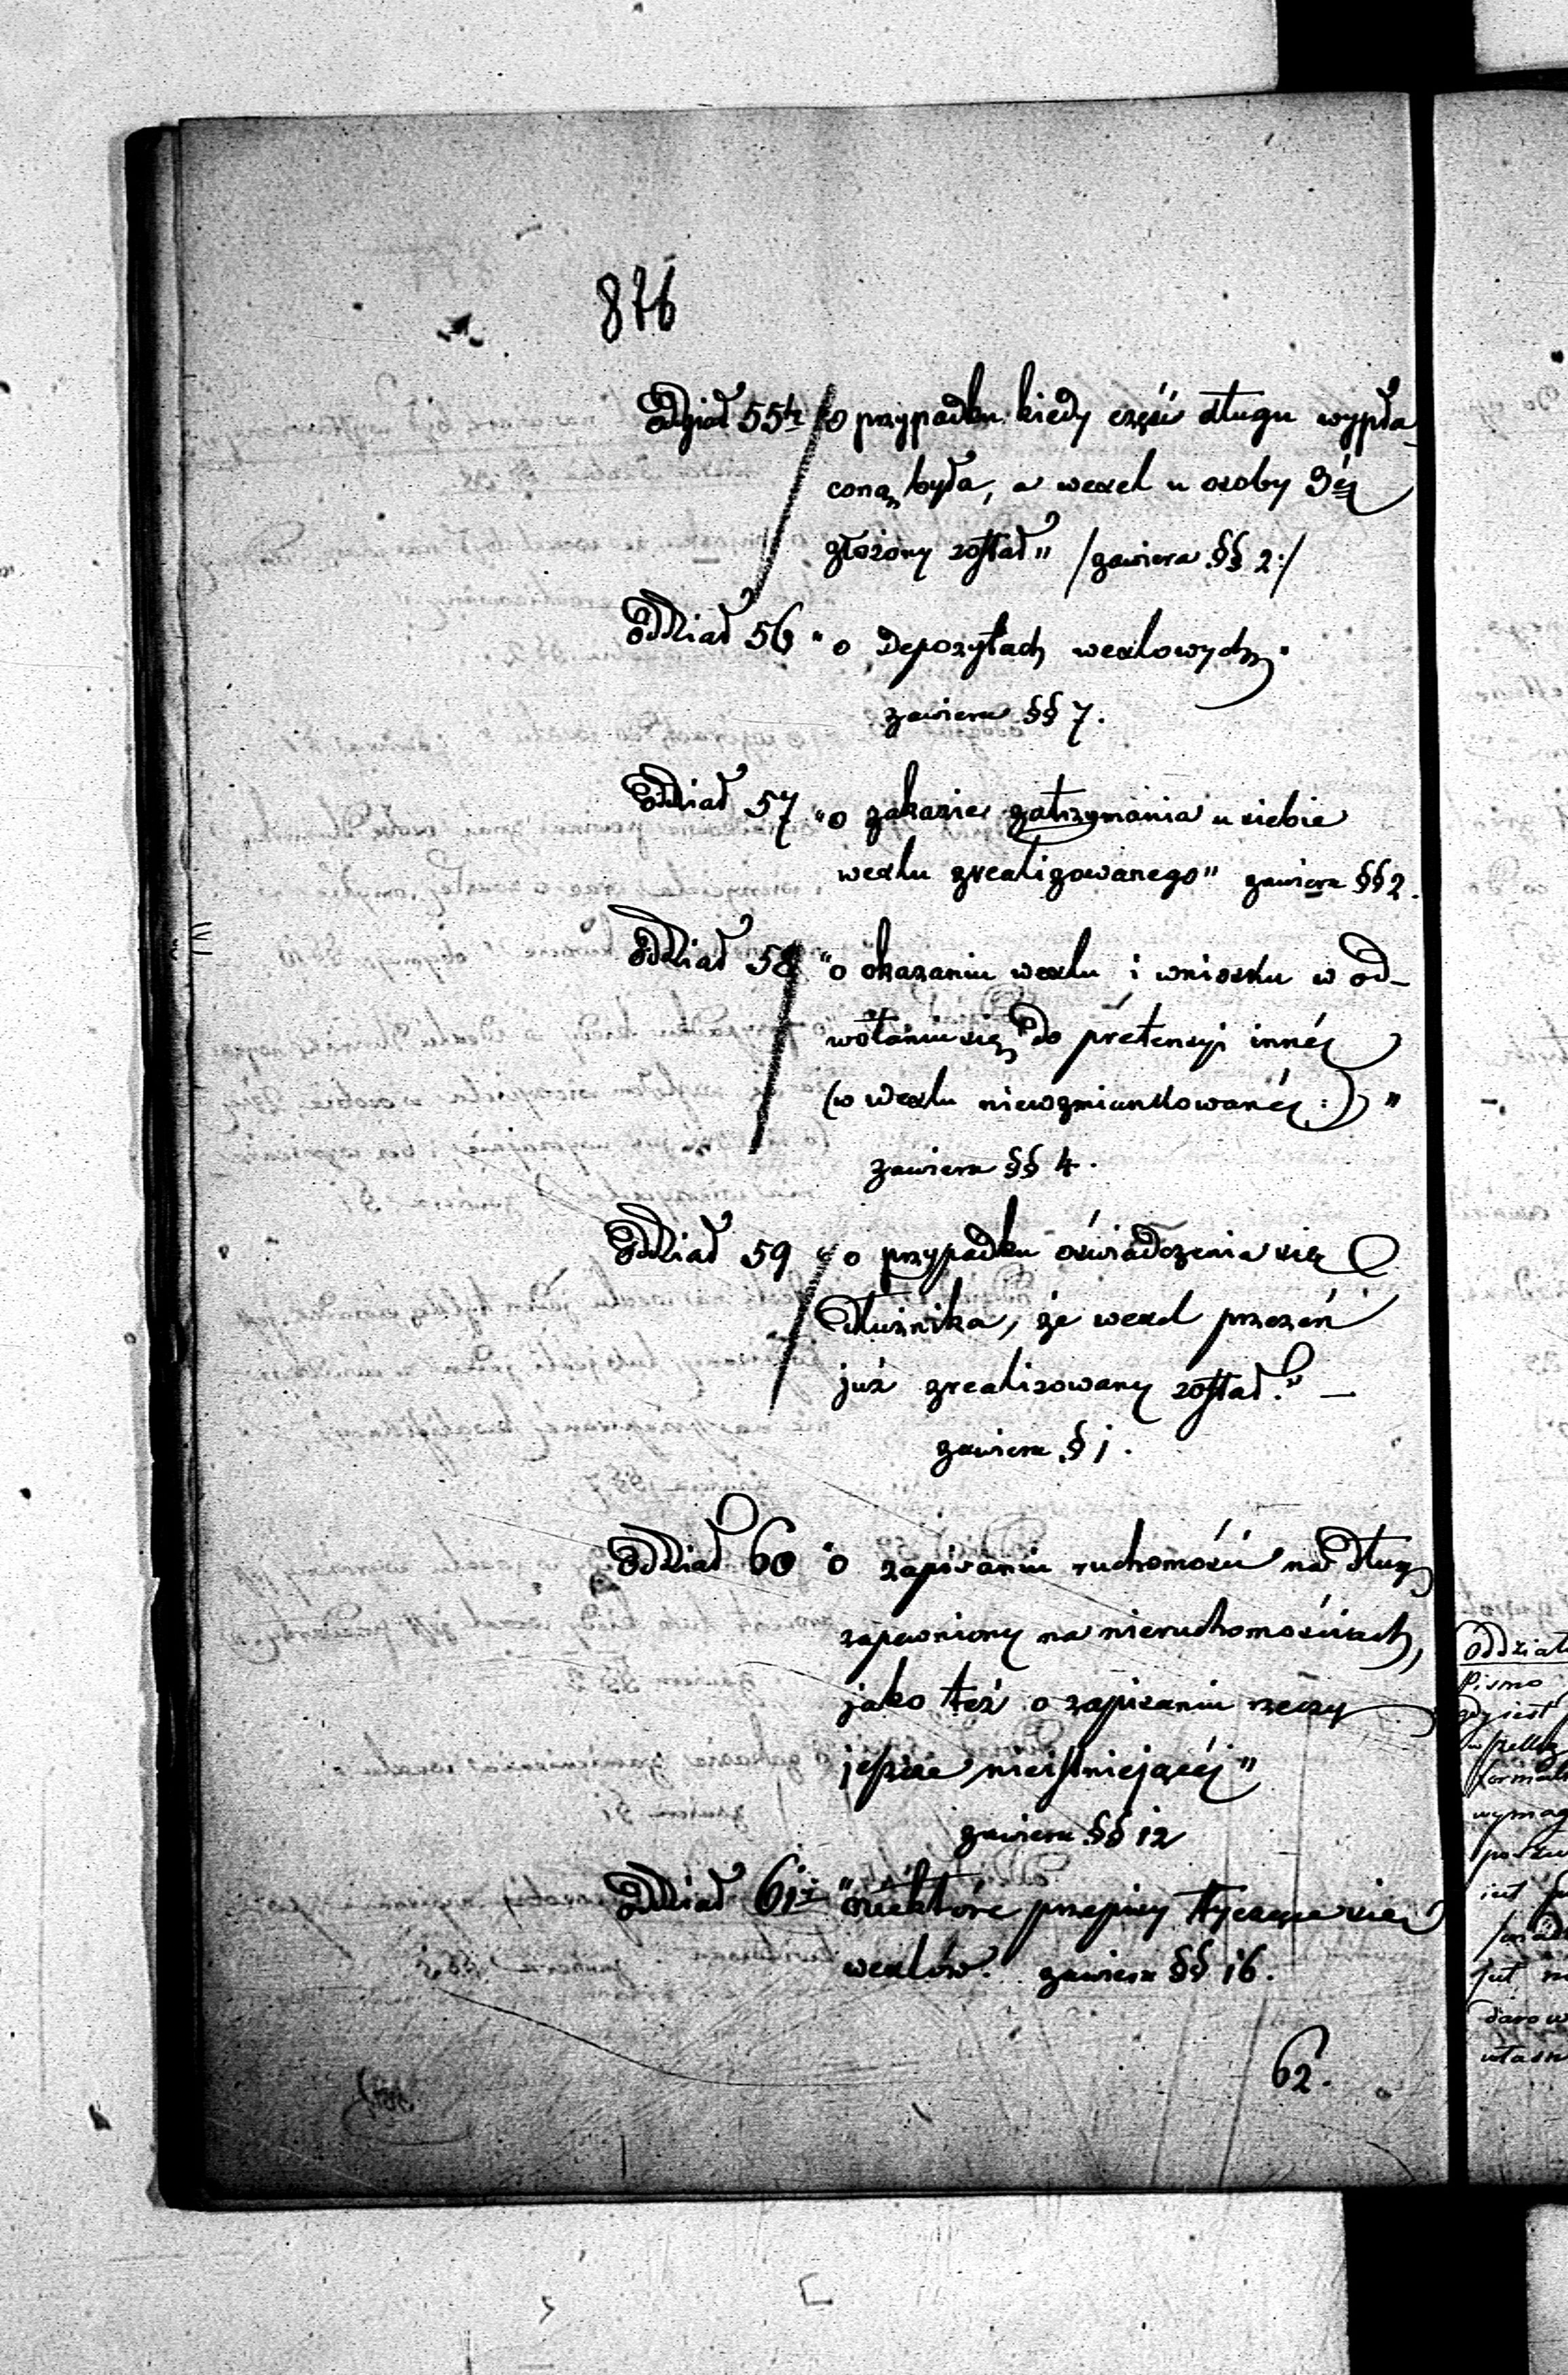 876
Oddział 55ty "o przypadku kiedy część długu wypła-
coną była, a wexel u osoby 3éj
złożony został" /zawiera §§ 2:/
Oddział 56 "o Depozytach wexlowych"
zawiera §§ 7.
Oddział 57 "o zakazie zatrzymania u siebie
wexlu zrealizowanego" zawiera §§ 2.
Oddział 58 "o okazaniu wexlu i wniosku w od-
wołaniu się do pretensyi innéj
(w wexlu niewzmiankowanéj:)"
zawiera §§ 4.
Oddział 59 "o przypadku oświadczenia się
dłużnika, że wexel przezeń
już zrealizowany został." —
zawiera § 1.
Oddział 60 "o zapisaniu ruchomości na dług
zapewniony na nieruchomościach,
jako też o zapisaniu rzeczy
jeszcze nieistniejącéj"
zawiera §§ 12
Oddział 61 "niektóre przepisy tyczące się
wexlów. zawiera §§ 16.
62.
Oddział
Pismo